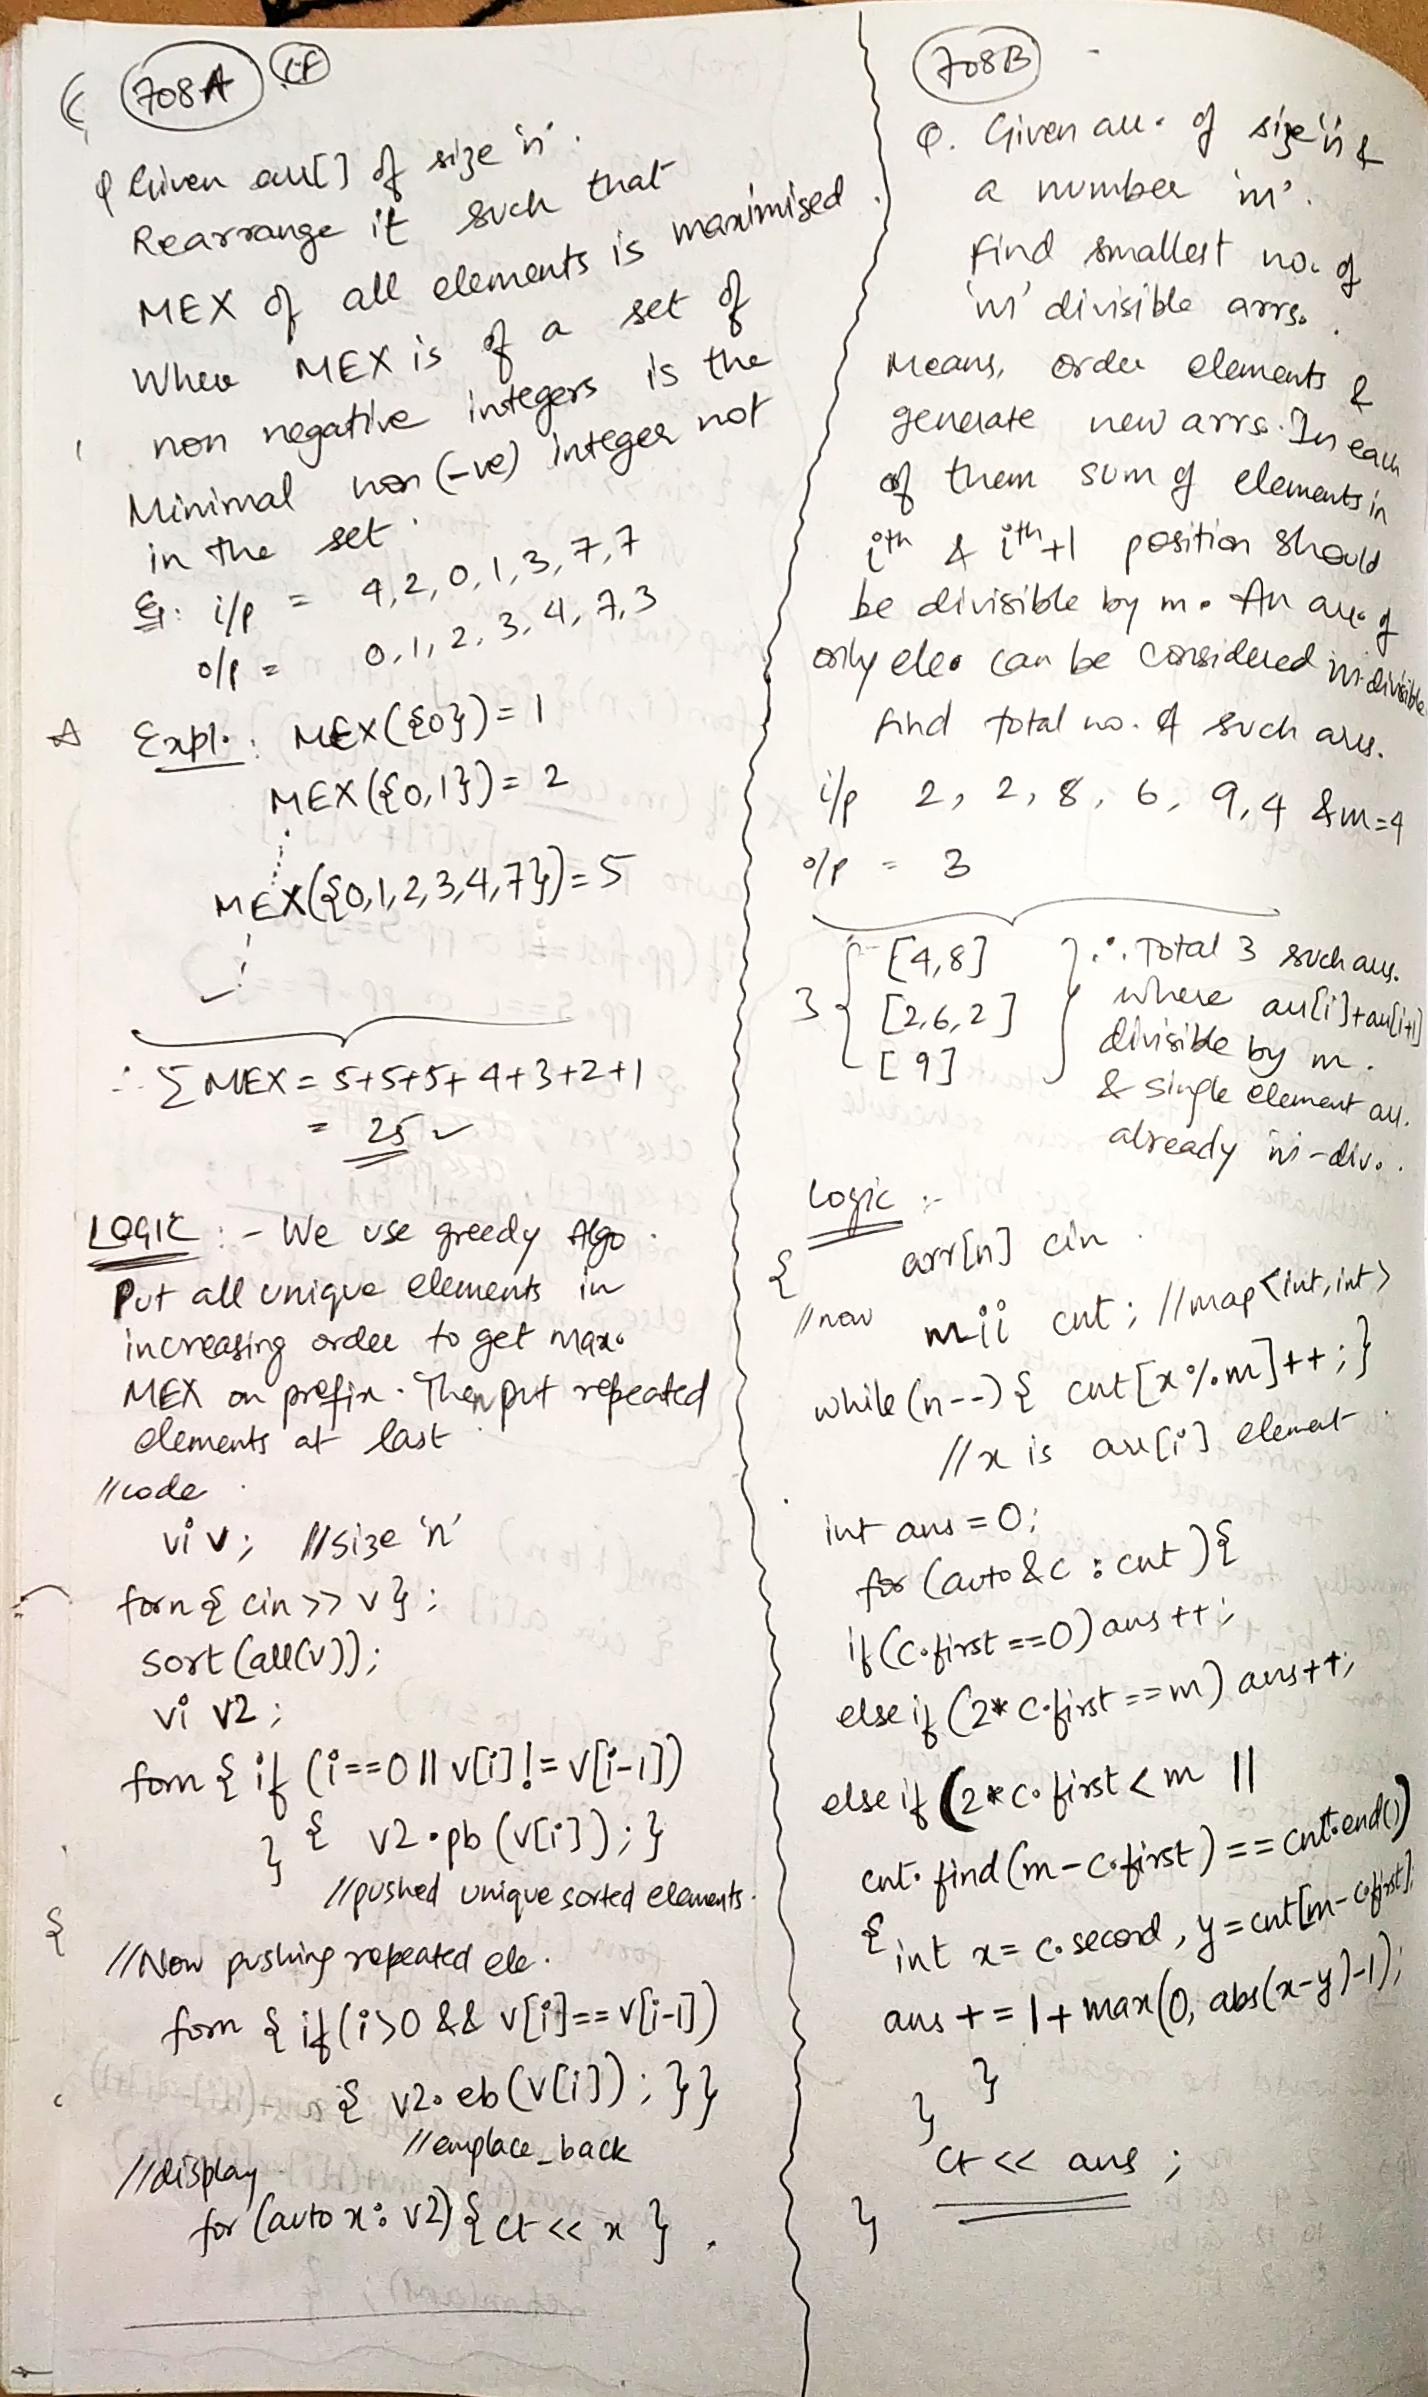 708A CF
Q Given arr[] of size 'n'.
Rearrange it such that
MEX of all elements is maximised.
Where MEX is of a set of
non negative integers is the
Minimal non (-ve) integer not
in the set.
Eg: i/p = 4,2,0,1,3,7,7
o/p = 0,1,2,3,4,7,3
Expl.: MEX({0}) = 1
MEX({0,1}) = 2
MEX({0,1,2,3,4,7}) = 5
∴ Σ MEX = 5+5+5+4+3+2+1
= 25 ✓
LOGIC :- We use greedy Algo.
Put all unique elements in
increasing order to get max.
MEX on prefix. Then put repeated
elements at last.
//code
vi v; //size 'n'
forn { cin >> v };
sort (all(v));
vi v2;
forn { if (i==0 || v[i] != v[i-1])
{ v2.pb (v[i]); }
}
//pushed unique sorted elements.
{
//Now pushing repeated ele.
forn { if (i>0 && v[i]==v[i-1])
{ v2.eb (v[i]); }}
//emplace_back
//display
for (auto x: v2) { ct << x }.
708B
Q. Given arr. of size 'n' &
a number 'm'.
Find smallest no. of
'm' divisible arrs.
Means, order elements &
generate new arrs. In each
of them sum of elements in
ith & ith+1 position should
be divisible by m. An arr. of
only ele. can be considered m-divisible
find total no. of such arrs.
i/p 2, 2, 8, 6, 9, 4 & m=4
o/p = 3
3 { [4,8]
[2,6,2]
[9]
} ∴ Total 3 such arrs.
where arr[i]+arr[i+1]
divisible by m.
& single element arr.
already m-div.
Logic :-
{ arr[n] cin.
//now mii cnt; //map <int,int>
while (n--) { cnt[x%m]++; }
//x is arr[i] element.
int ans = 0;
for (auto &c : cnt) {
if (c.first ==0) ans ++;
else if (2* c.first ==m) ans++;
else if (2*c.first < m ||
cnt.find (m-c.first) == cnt.end())
{ int x= c.second, y = cnt[m-c.first];
ans += 1 + max(0, abs(x-y)-1);
}
}
ct << ans ;
}